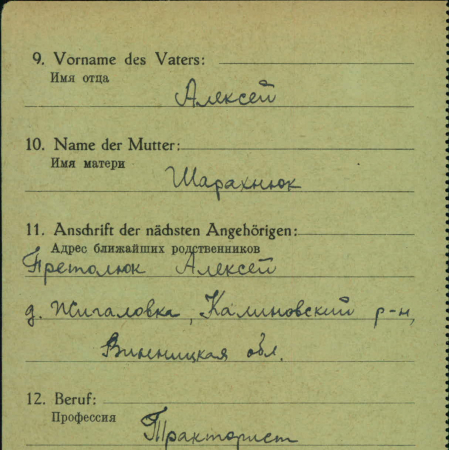 9. Vorname des Vaters:
Имя отца
Алексей
10. Name der Mutter:
Имя матери
Шарахнюк
11. Anschrift der nächsten Angehörigen:
Адрес ближайших родственников
Претолюк Алексей
д. Жигаловка, Калиновский р-н,
Винницкая обл.
12. Beruf:
Профессия
Тракторист